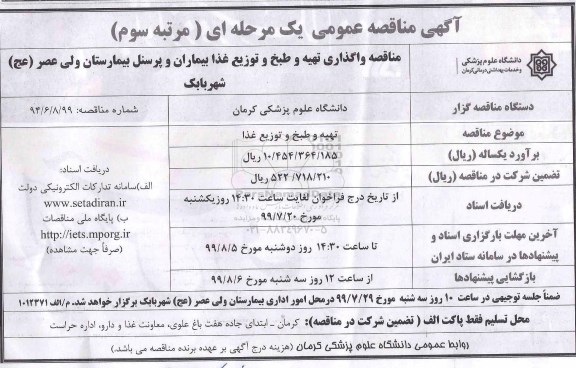 آگهی مناقصه عمومی یک مرحله ای ( مرتبه سوم)
دانشگاه علوم پزشکی
و خدمات بهداشتی درمانی کرمان
مناقصه واگذاری تهیه و طبخ و توزیع غذا بیماران و پرسنل بیمارستان ولی عصر (عج)
شهربابک
دستگاه مناقصه گزار
دانشگاه علوم پزشکی کرمان
شماره مناقصه: ۹۳/۶/۸/۹۹
موضوع مناقصه
تهیه و طبخ و توزیع غذا
برآورد یکساله (ریال)
۱۰/۴۵۴/۳۶۴/۱۸۵ ریال
تضمین شرکت در مناقصه (ریال)
۵۲۲/۷۱۸/۲۱۰ ریال
دریافت اسناد
از تاریخ درج فراخوان لغایت ساعت ۱۴:۳۰ روز یکشنبه
مورخ ۹۹/۷/۲۰
آخرین مهلت بارگزاری اسناد و
پیشنهادها در سامانه ستاد ایران
تا ساعت ۱۴:۳۰ روز دوشنبه مورخ ۹۹/۸/۵
بازگشایی پیشنهادها
از ساعت ۱۲ روز سه شنبه مورخ ۹۹/۸/۶
دریافت اسناد:
الف)سامانه تدارکات الکترونیکی دولت
www.setadiran.ir
ب) پایگاه ملی مناقصات
http://iets.mporg.ir
(صرفاً جهت مشاهده)
ضمناً جلسه توجیهی در ساعت ۱۰ روز سه شنبه مورخ ۹۹/۷/۲۹ درمحل امور اداری بیمارستان ولی عصر (عج) شهربابک برگزار خواهد شد. م/الف ۱۰۱۲۳۷۱
محل تسلیم فقط پاکت الف ( تضمین شرکت در مناقصه): کرمان ـ ابتدای جاده هفت باغ علوی، معاونت غذا و دارو، اداره حراست
روابط عمومی دانشگاه علوم پزشکی کرمان (هزینه درج آگهی بر عهده برنده مناقصه می باشد.)